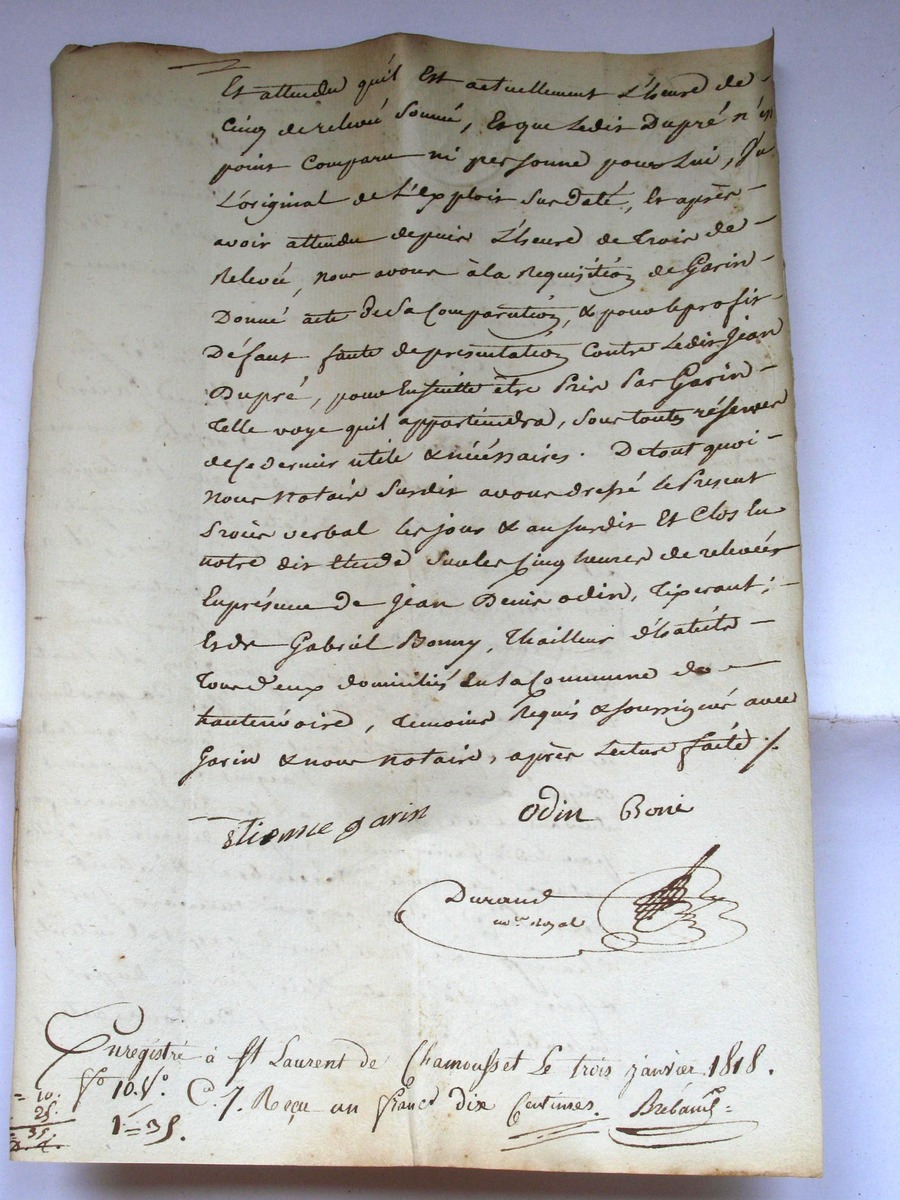 Et attendu qu'il est actuellement L'heure de
Cinq de relevée Sonnée, Et que Ledit Dupré n'est
point Comparu ni personne pour Lui, Vu
L'original de L'exploit Susdaté, Et après
avoir attendu depuis L'heure de trois de
Relevée, nous avons à la Requisition de Garin
Donné acte de Sa Comparution, & pour le profit
Défaut faute de présentation Contre Ledit Jean
Dupré, pour Ensuitte être Pris Par Garin
telle voye qu'il appartiendra, Sous toutes réserves
de Ce dernier utile & nécéssaires. De tout quoi
Nous Notaire Susdit avons dressé le Present
Procès verbal les jour & an susdit Et Clos En
notre dit Etude Sur les Cinq heures de relevées
En présence de Jean Denis odin, Tixerant;
Et de Gabriël Bonny, Thailleur d'habits
tous d'eux domiciliés En La Commune de
hauterivoire, temoins Requis & soussignés avec
Garin & nous notaire, après Lecture faite /.
Etienne garin Odin Boni
Durand
no.re Royal
Enregistré à St Laurent de Chamousset Le trois janvier 1818.
fo 10. Vo. Ce 7. Reçu un franc dix Centimes.
10:
25:
35
1=35.